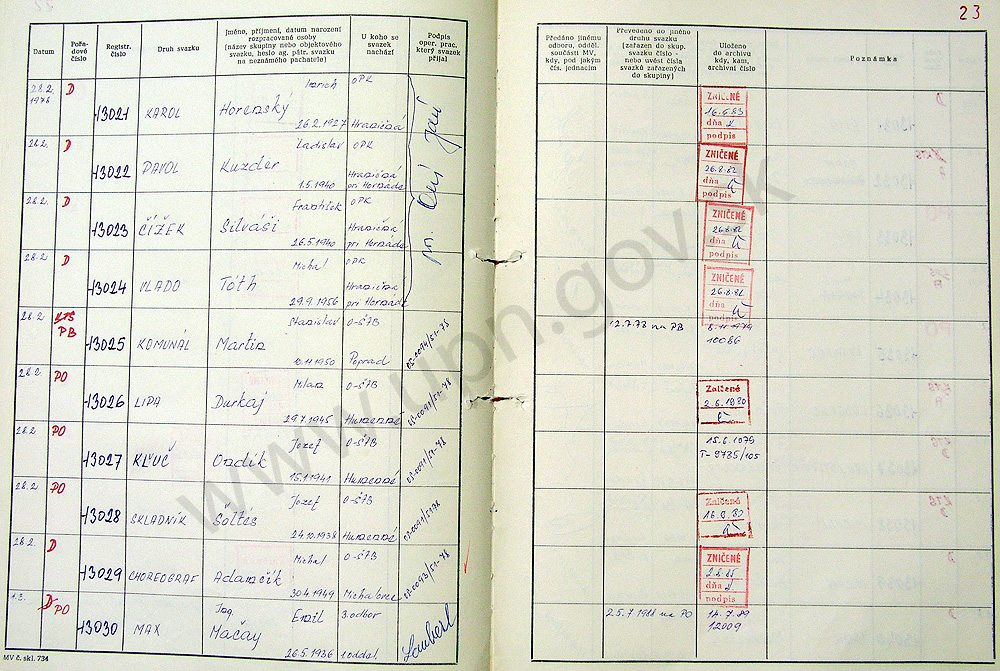 23
Datum
Pořa-
dové
číslo
Registr.
číslo
Druh svazku
Jméno, příjmení, datum narození
rozpracované osoby
(název skupiny nebo objektového
svazku, heslo ag. pátr. svazku
na neznámého pachatele)
U koho se
svazek
nachází
Podpis
oper. prac.
který svazek
přijal
Předáno jinému
odboru, odděl.
součásti MV,
kdy, pod jakým
čís. jednacím
Převedeno do jiného
druhu svazku
(zařazen do skup.
svazku číslo -
nebo uvést čísla
svazků zařazených
do skupiny)
Uloženo
do archívu
kdy, kam,
archivní číslo
Poznámka
28.2.
1978
D
13021
KAROL
Horenský
26.2.1927
OPK
ZNIČENÉ
16.6.83
dňa
podpis
28.2.
D
13022
PAVOL
Ladislav
Kuzder
1.5.1940
OPK
ZNIČENÉ
26.8.82
dňa
podpis
28.2.
D
13023
ČÍŽEK
František
Silváši
26.5.1940
OPK
ZNIČENÉ
26.8.82
dňa
podpis
28.2.
D
13024
VLADO
Michal
Tóth
29.9.1956
OPK
ZNIČENÉ
26.8.82
dňa
podpis
28.2.
PB
13025
KOMUNÁL
Stanislav
Martin
10.11.1950
O-ŠTB
Poprad
12.7.78 na PB
8.11.1979
10086
28.2.
PO
13026
LIPA
Milan
Durkaj
29.7.1945
O-ŠTB
Humenné
Zničené
2.6.1980
28.2.
PO
13027
KĽUČ
Jozef
Ondík
15.11.1941
O-ŠTB
Humenné
15.6.1979
T-9735/105
28.2.
PO
13028
SKLADNÍK
Jozef
Šoltés
24.10.1938
O-ŠTB
Humenné
Zničené
28.2.
D
13029
CHOREOGRAF
Michal
Adamčík
30.4.1949
O-ŠTB
Michalovce
ZNIČENÉ
dňa
podpis
1.3.
D PO
13030
MAX
Ing. Emil
Mačay
26.5.1936
3.odbor
1.oddel.
25.7.1988 na PO
14.7.89
12009
MV č. skl. 734
www.upn.gov.sk